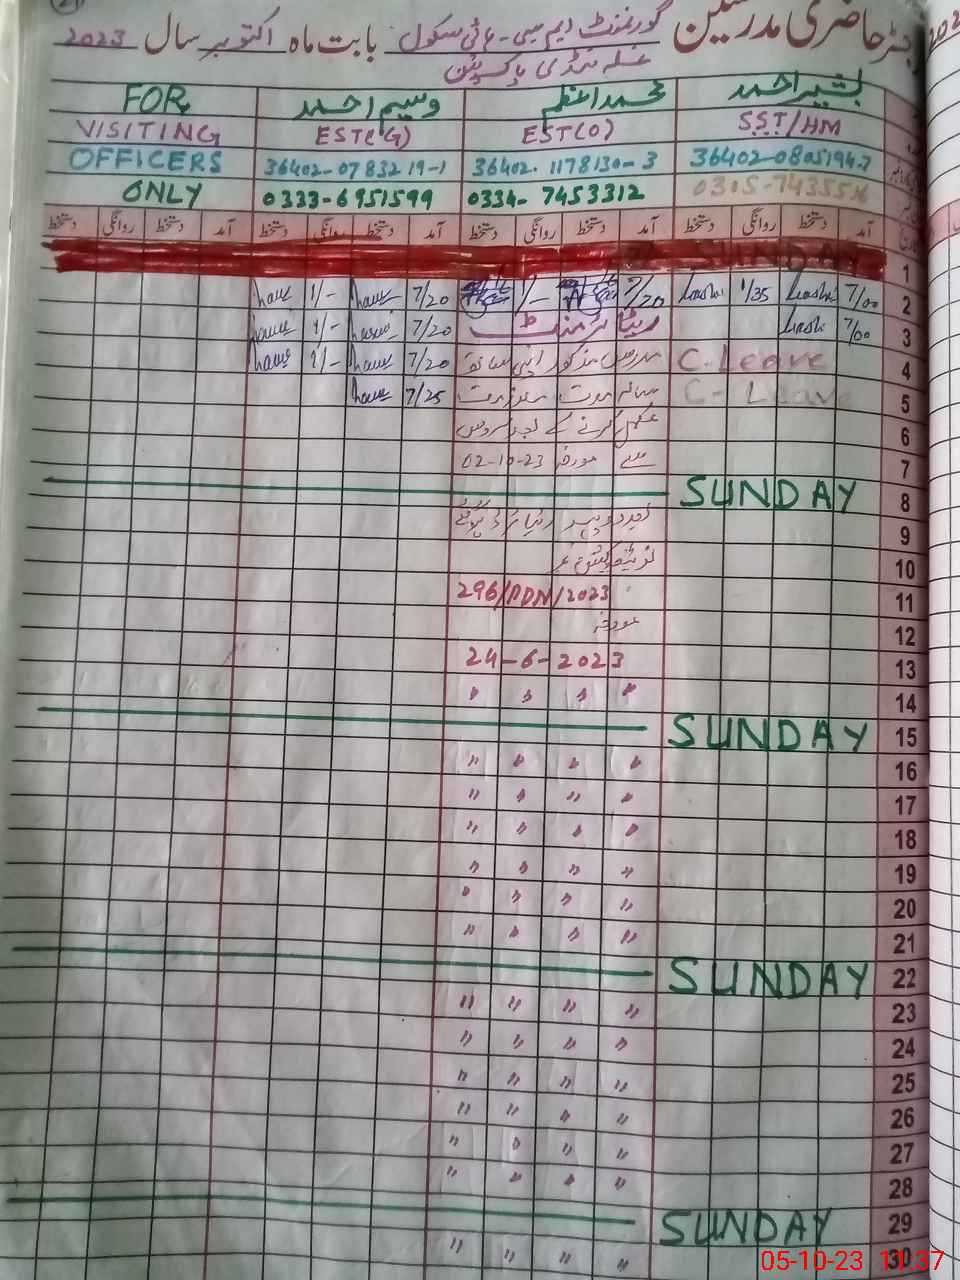 رجسٹر حاضری مدرسین گورنمنٹ ایم سی ہائی سکول بابت ماہ اکتوبر سال 2023
غلہ منڈی پاکپتن
بشیر احمد محمد اعظم وسیم احمد FOR
SST/HM EST(O) EST(G) VISITING
36402-0805194-7 36402-1178130-3 36402-0783219-1 OFFICERS
0305-7435556 0334-7453312 0333-6951599 ONLY
آمد دستخط روانگی دستخط آمد دستخط روانگی دستخط آمد دستخط روانگی دستخط آمد دستخط روانگی دستخط
1 SUNDAY
2 7/00 1/35 7/20 1/- 7/20 1/-
3 7/00 ریٹائرمنٹ 7/20 1/-
4 C.Leave مدرس مذکور اپنی ساٹھ 7/20 1/-
5 C- Leave سالہ مدت ملازمت 7/25
6 مکمل کرنے کے بعد سروس
7 سے مورخہ 02-10-23
8 SUNDAY
9
10
11 296/PDN/2023
12 مورخہ
13 24-6-2023
14 " " " "
15 SUNDAY
16 " " " "
17 " " " "
18 " " " "
19 " " " "
20 " " " "
21 " " " "
22 SUNDAY
23 " " " "
24 " " " "
25 " " " "
26 " " " "
27 " " " "
28 " " " "
29 SUNDAY
30 " " " "
05-10-23 11:37